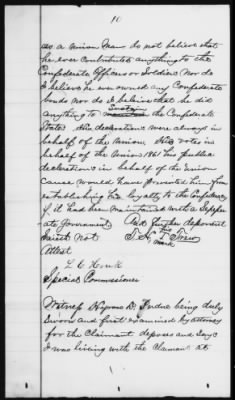 10
as a Union Man do not believe that
he ever contributed anything to the
Confederate Officers or Soldiers Nor do
I believe he ever owned any Confederate
bonds nor do I believe that he did
anything to Sustain the Confederate
States His declarations were always in
behalf of the Union, His votes in
behalf of the Union 1861 his public
declarations in behalf of the Union
cause would have prevented him from
establishing his loyalty to the Confederacy
if it had been maintained with a Seper
ate Government And further deponent
Saieth Not
his
mark
Attest
Special Commissioner
Witness being duly
Sworn and first examined by attorney
for the Claimant deposes and Says
I was living with the Claimant at